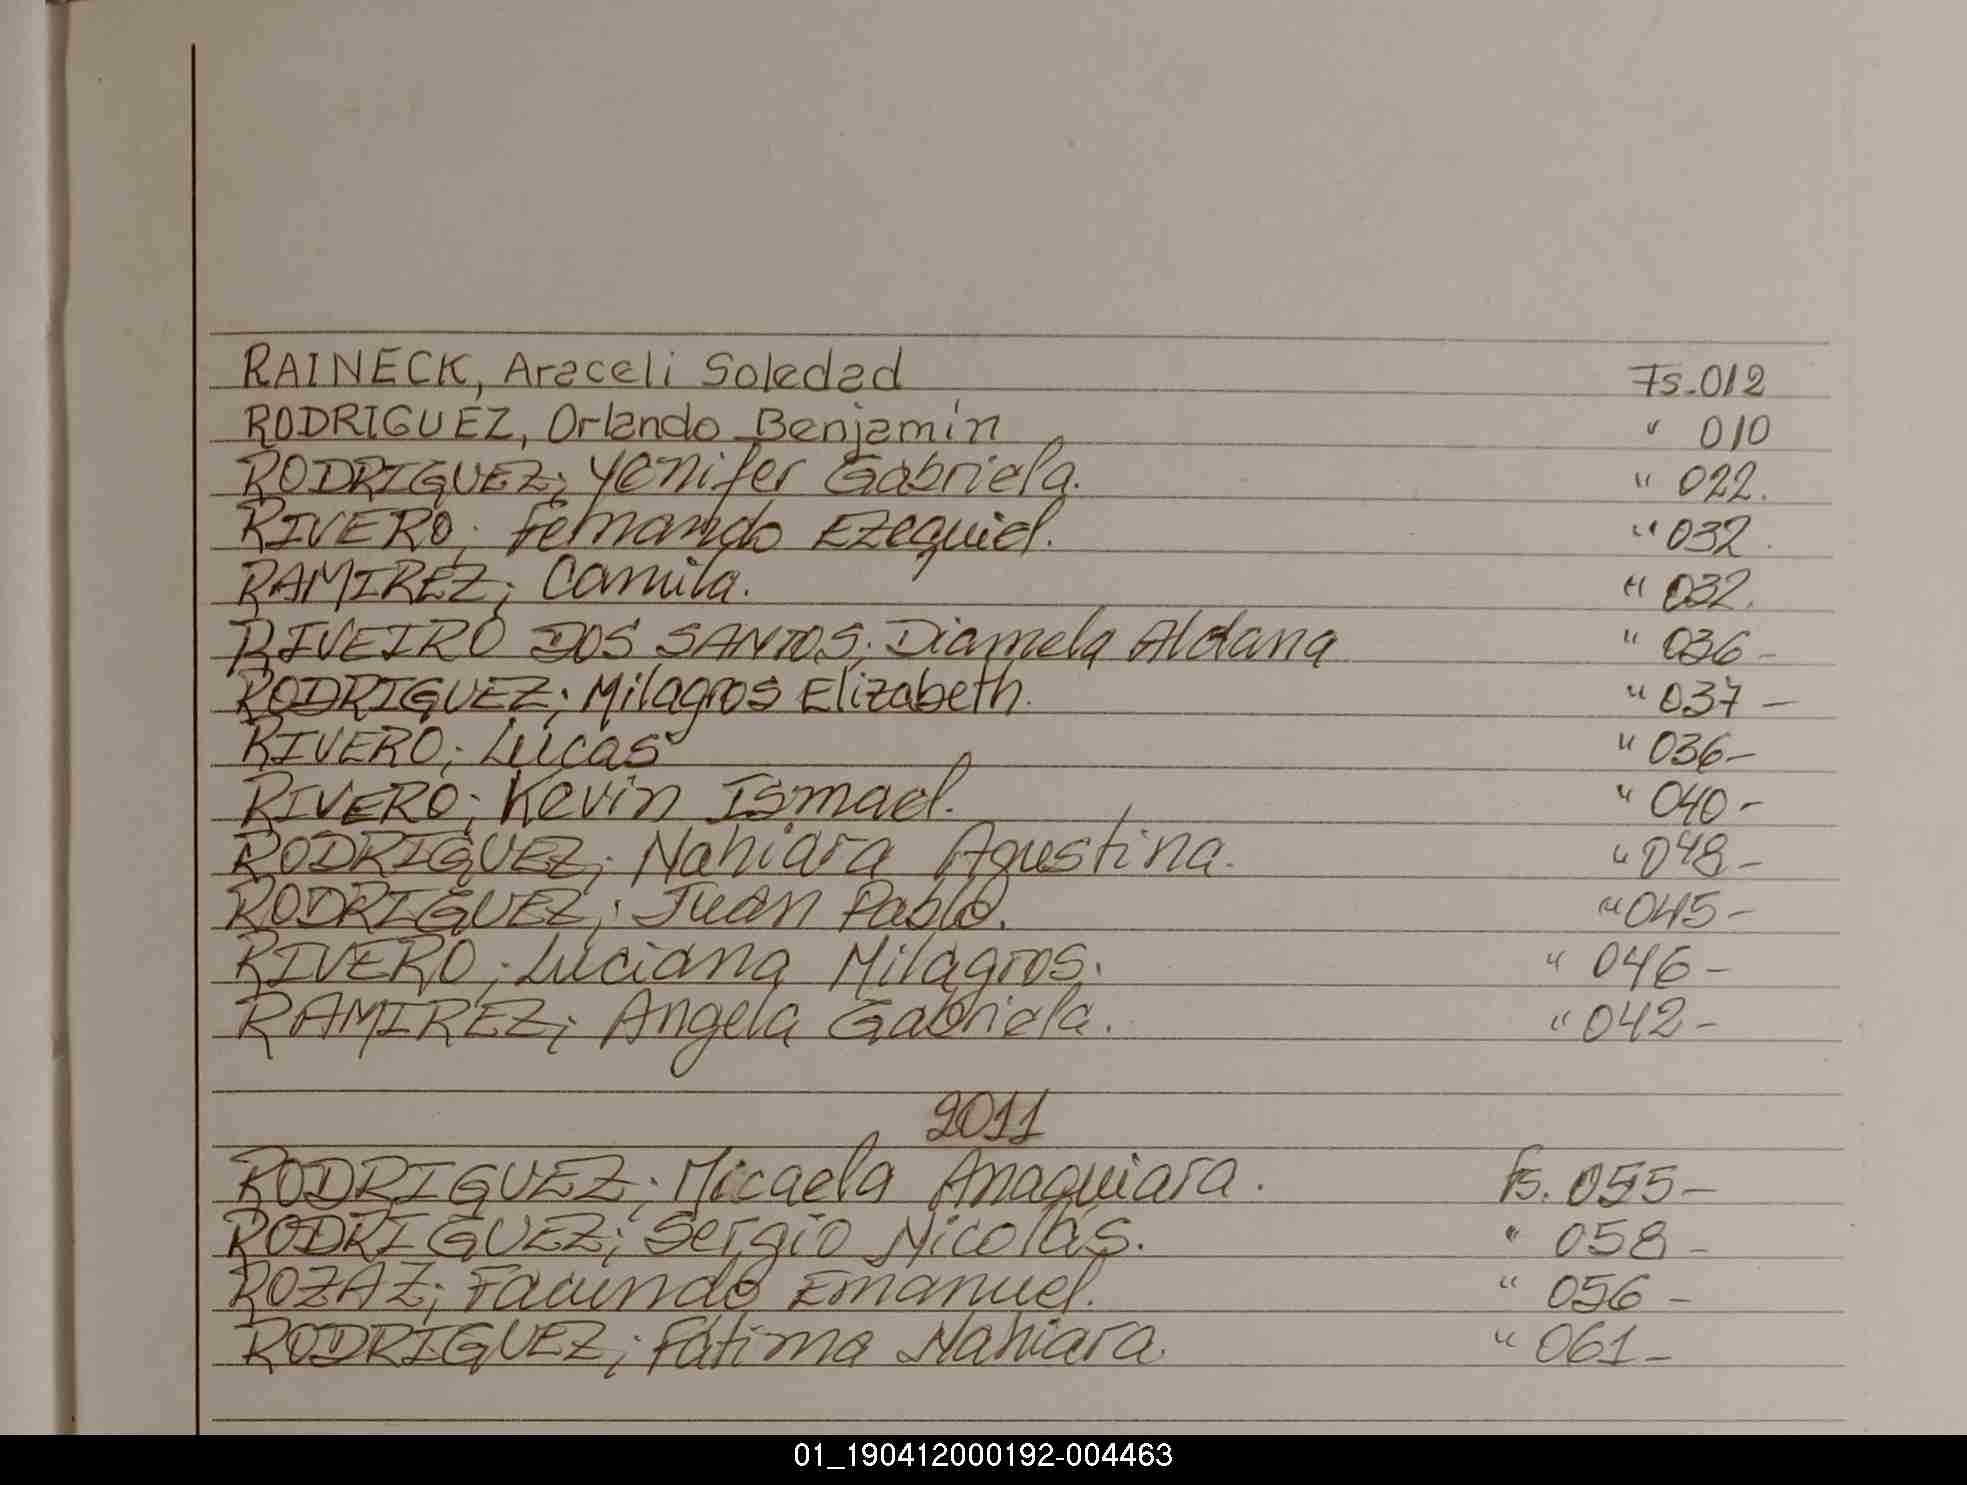 RAINECK, Araceli Soledad Fs. 012
RODRIGUEZ, Orlando Benjamín " 010
RODRIGUEZ; Yenifer Gabriela. " 022.
RIVERO; Fernando Ezequiel. " 032.
RAMIREZ; Camila. " 032.
RIVEIRO DOS SANTOS; Diamela Aldana " 036-
RODRIGUEZ; Milagros Elizabeth. " 037-
RIVERO; Lucas " 036-
RIVERO; Kevin Ismael. " 040-
RODRIGUEZ; Nahiara Agustina. " 048-
RODRIGUEZ; Juan Pablo. " 045-
RIVERO; Luciana Milagros. " 046-
RAMIREZ; Angela Gabriela. " 042-
2011
RODRIGUEZ; Micaela Anaquiara. Fs. 055-
RODRIGUEZ; Sergio Nicolás. " 058-
ROZAZ; Facundo Emanuel. " 056-
RODRIGUEZ; Fátima Nahiara. " 061-
01_190412000192-004463